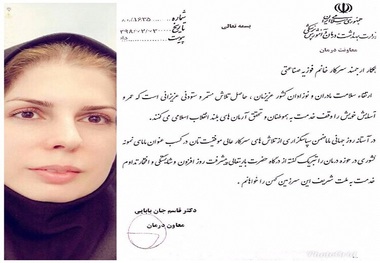 بسمه تعالی
جمهوری اسلامی ایران
وزارت بهداشت، درمان و آموزش پزشکی
معاونت درمان
شماره
تاریخ
پیوست
همکار ارجمند سرکار خانم فوزیه صناعتی
ارتقاء سلامت مادران و نوزادان کشور عزیزمان، حاصل تلاش مستمر و ستودنی عزیزانی است که عمر و
آسایش خویش را وقف خدمت به هموطنان و تحقق آرمان های بلند انقلاب اسلامی می کنند.
در آستانه روز جهانی ماما ضمن سپاسگزاری از تلاش های سرکار عالی موفقیت تان در کسب عنوان مامای نمونه
کشوری در حوزه درمان را تبریک گفته از درگاه حضرت باریتعالی پیشرفت روز افزون و شایستگی و افتخار تداوم
خدمت به ملت شریف این سرزمین کهن را خواهانم.
دکتر قاسم جان بابایی
معاون درمان